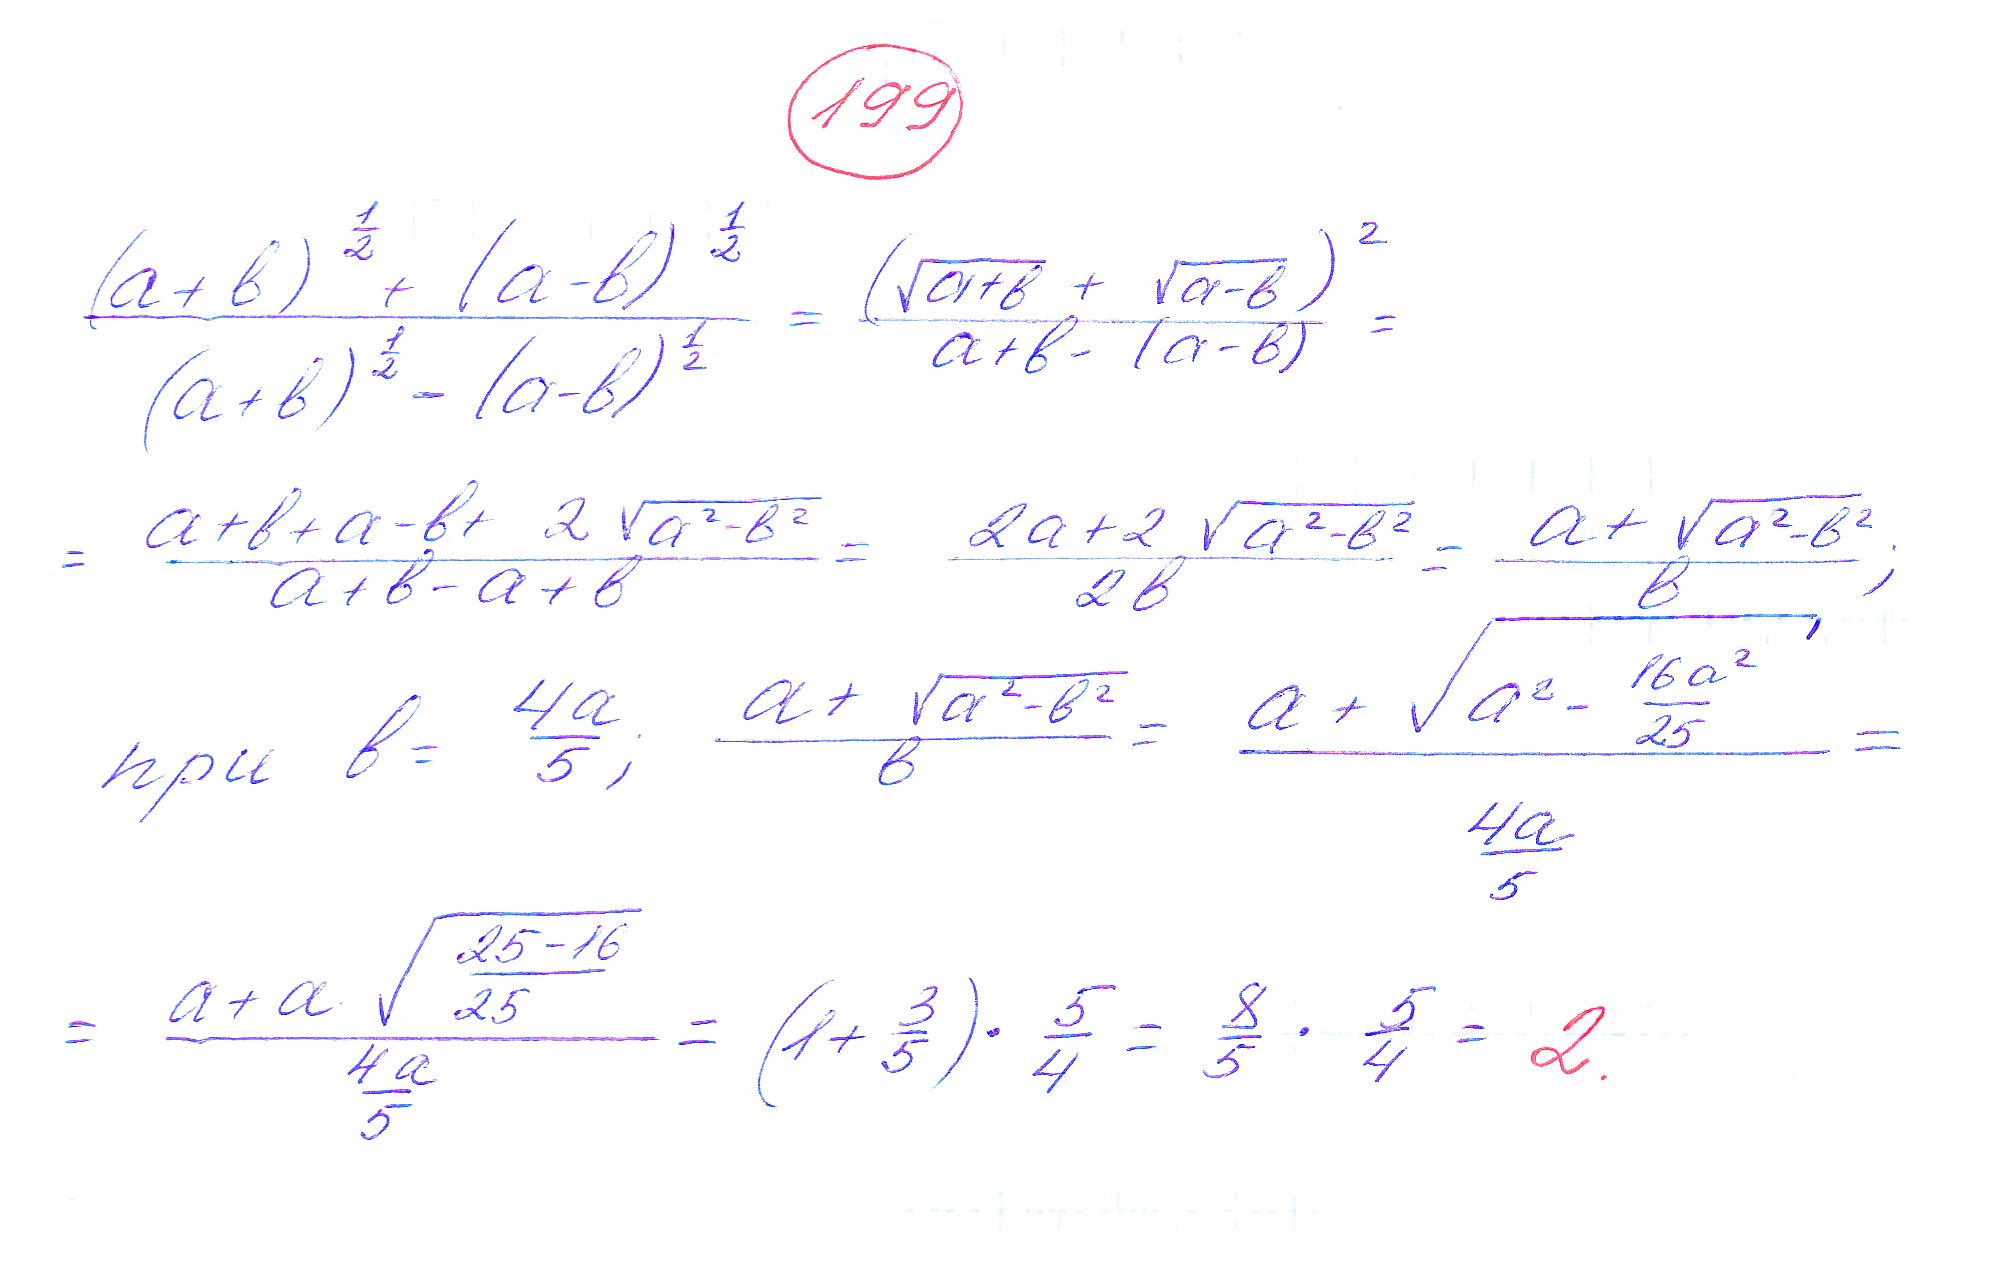 199
\frac{(a+b)^{\frac{1}{2}} + (a-b)^{\frac{1}{2}}}{(a+b)^{\frac{1}{2}} - (a-b)^{\frac{1}{2}}} = \frac{(\sqrt{a+b} + \sqrt{a-b})^2}{a+b-(a-b)} =
= \frac{a+b+a-b+2\sqrt{a^2-b^2}}{a+b-a+b} = \frac{2a+2\sqrt{a^2-b^2}}{2b} = \frac{a+\sqrt{a^2-b^2}}{b};
при b = \frac{4a}{5}; \frac{a+\sqrt{a^2-b^2}}{b} = \frac{a+\sqrt{a^2-\frac{16a^2}{25}}}{\frac{4a}{5}} =
= \frac{a+a\sqrt{\frac{25-16}{25}}}{\frac{4a}{5}} = (1+\frac{3}{5}) \cdot \frac{5}{4} = \frac{8}{5} \cdot \frac{5}{4} = 2.